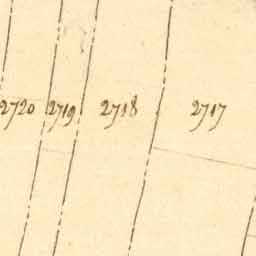 2720 2719 2718 2717